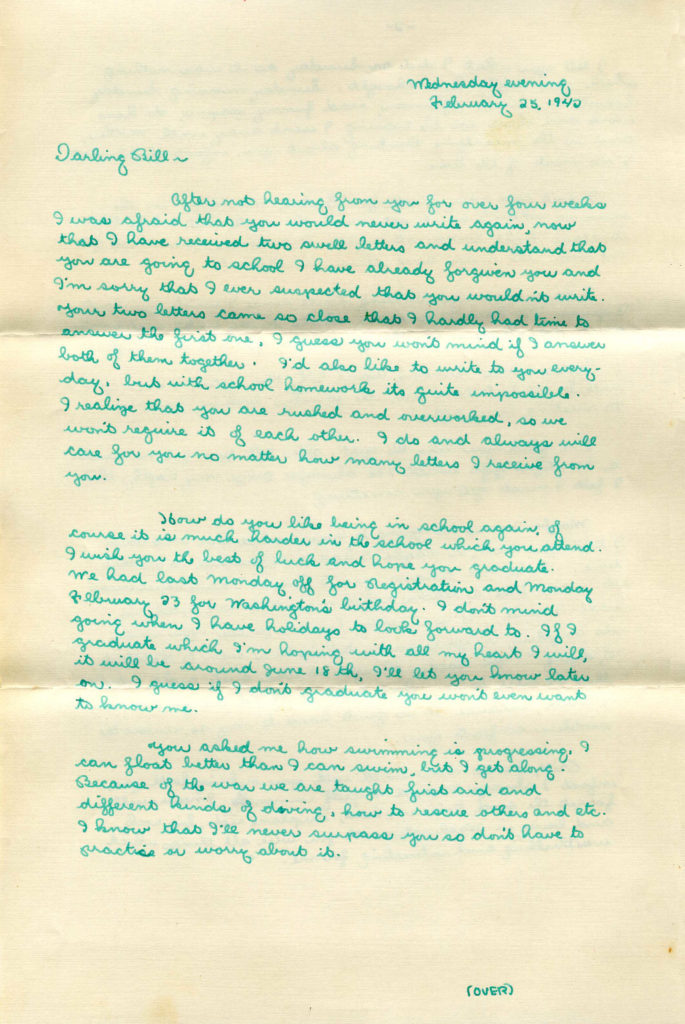 Wednesday evening
February 25, 1942
Darling Bill~
After not hearing from you for over four weeks
I was afraid that you would never write again, now
that I have received two swell letters and understand that
you are going to school I have already forgiven you and
I'm sorry that I ever suspected that you wouldn't write.
Your two letters came so close that I hardly had time to
answer the first one, I guess you won't mind if I answer
both of them together. I'd also like to write to you every-
day, but with school homework its quite impossible.
I realize that you are rushed and overworked, so we
won't require it of each other. I do and always will
care for you no matter how many letters I receive from
you.
How do you like being in school again, of
course it is much harder in the school which you attend.
I wish you the best of luck and hope you graduate.
We had last Monday off for Registration and Monday
February 23 for Washington's birthday. I don't mind
going when I have holidays to look forward to. If I
graduate which I'm hoping with all my heart I will,
it will be around June 18th, I'll let you know later
on. I guess if I don't graduate you won't even want
to know me.
You asked me how swimming is progressing, I
can float better than I can swim, but I get along.
Because of the war we are taught first aid and
different kinds of diving, how to rescue others and etc.
I know that I'll never surpass you so don't have to
practice or worry about it.
(OVER)